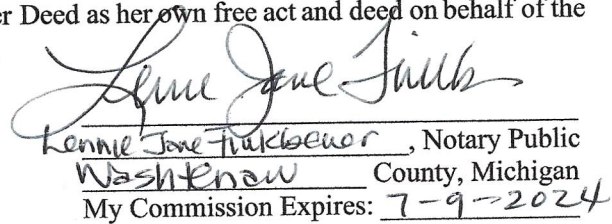 r Deed as her own free act and deed on behalf of the
Lennie Jane Finkbeiner, Notary Public
Washtenaw County, Michigan
My Commission Expires: 7-9-2024